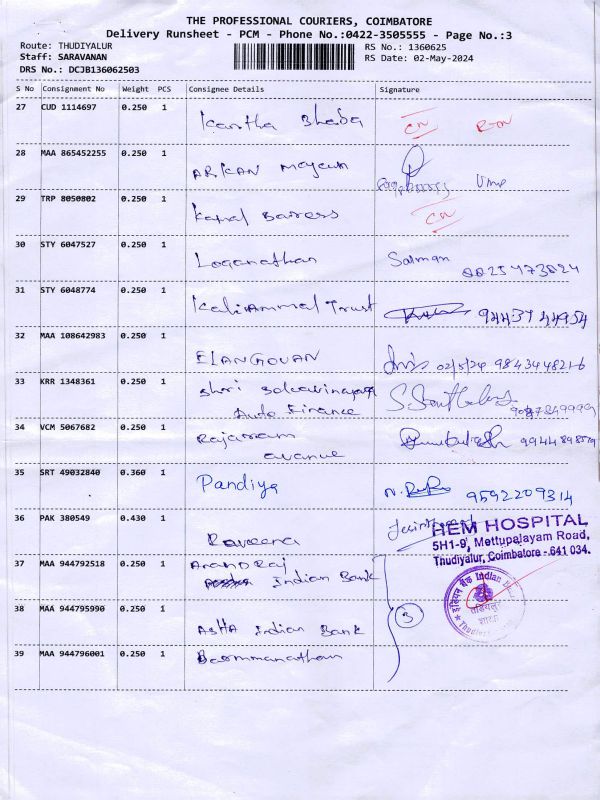 THE PROFESSIONAL COURIERS, COIMBATORE
Delivery Runsheet - PCM - Phone No.:0422-3505555 - Page No.:3
Route: THUDIYALUR
RS No.: 1360625
Staff: SARAVANAN
RS Date: 02-May-2024
DRS No.: DCJB136062503
S No Consignment No Weight PCS Consignee Details Signature
27 CUD 1114697 0.250 1
CN
28 MAA 865452255 0.250 1
ARKAN
29 TRP 8050802 0.250 1
CN
30 STY 6047527 0.250 1
Loganathan Salman
31 STY 6048774 0.250 1
Kaliammal Trust
32 MAA 108642983 0.250 1
ELANGOVAN 02/5/24 9843448216
33 KRR 1348361 0.250 1
Shri
Auto Finance
34 VCM 5067682 0.250 1
Rajaram
avenue
35 SRT 49032840 0.360 1
Pandiya 9592209314
36 PAK 380549 0.430 1
Raveena
HEM HOSPITAL
5H1-9, Mettupalayam Road,
Thudiyalur, Coimbatore - 641 034.
37 MAA 944792518 0.250 1
Anand Raj
Indian Bank
38 MAA 944795990 0.250 1
Indian Bank
3
39 MAA 944796001 0.250 1
इंडियन बैंक Indian
शाखा